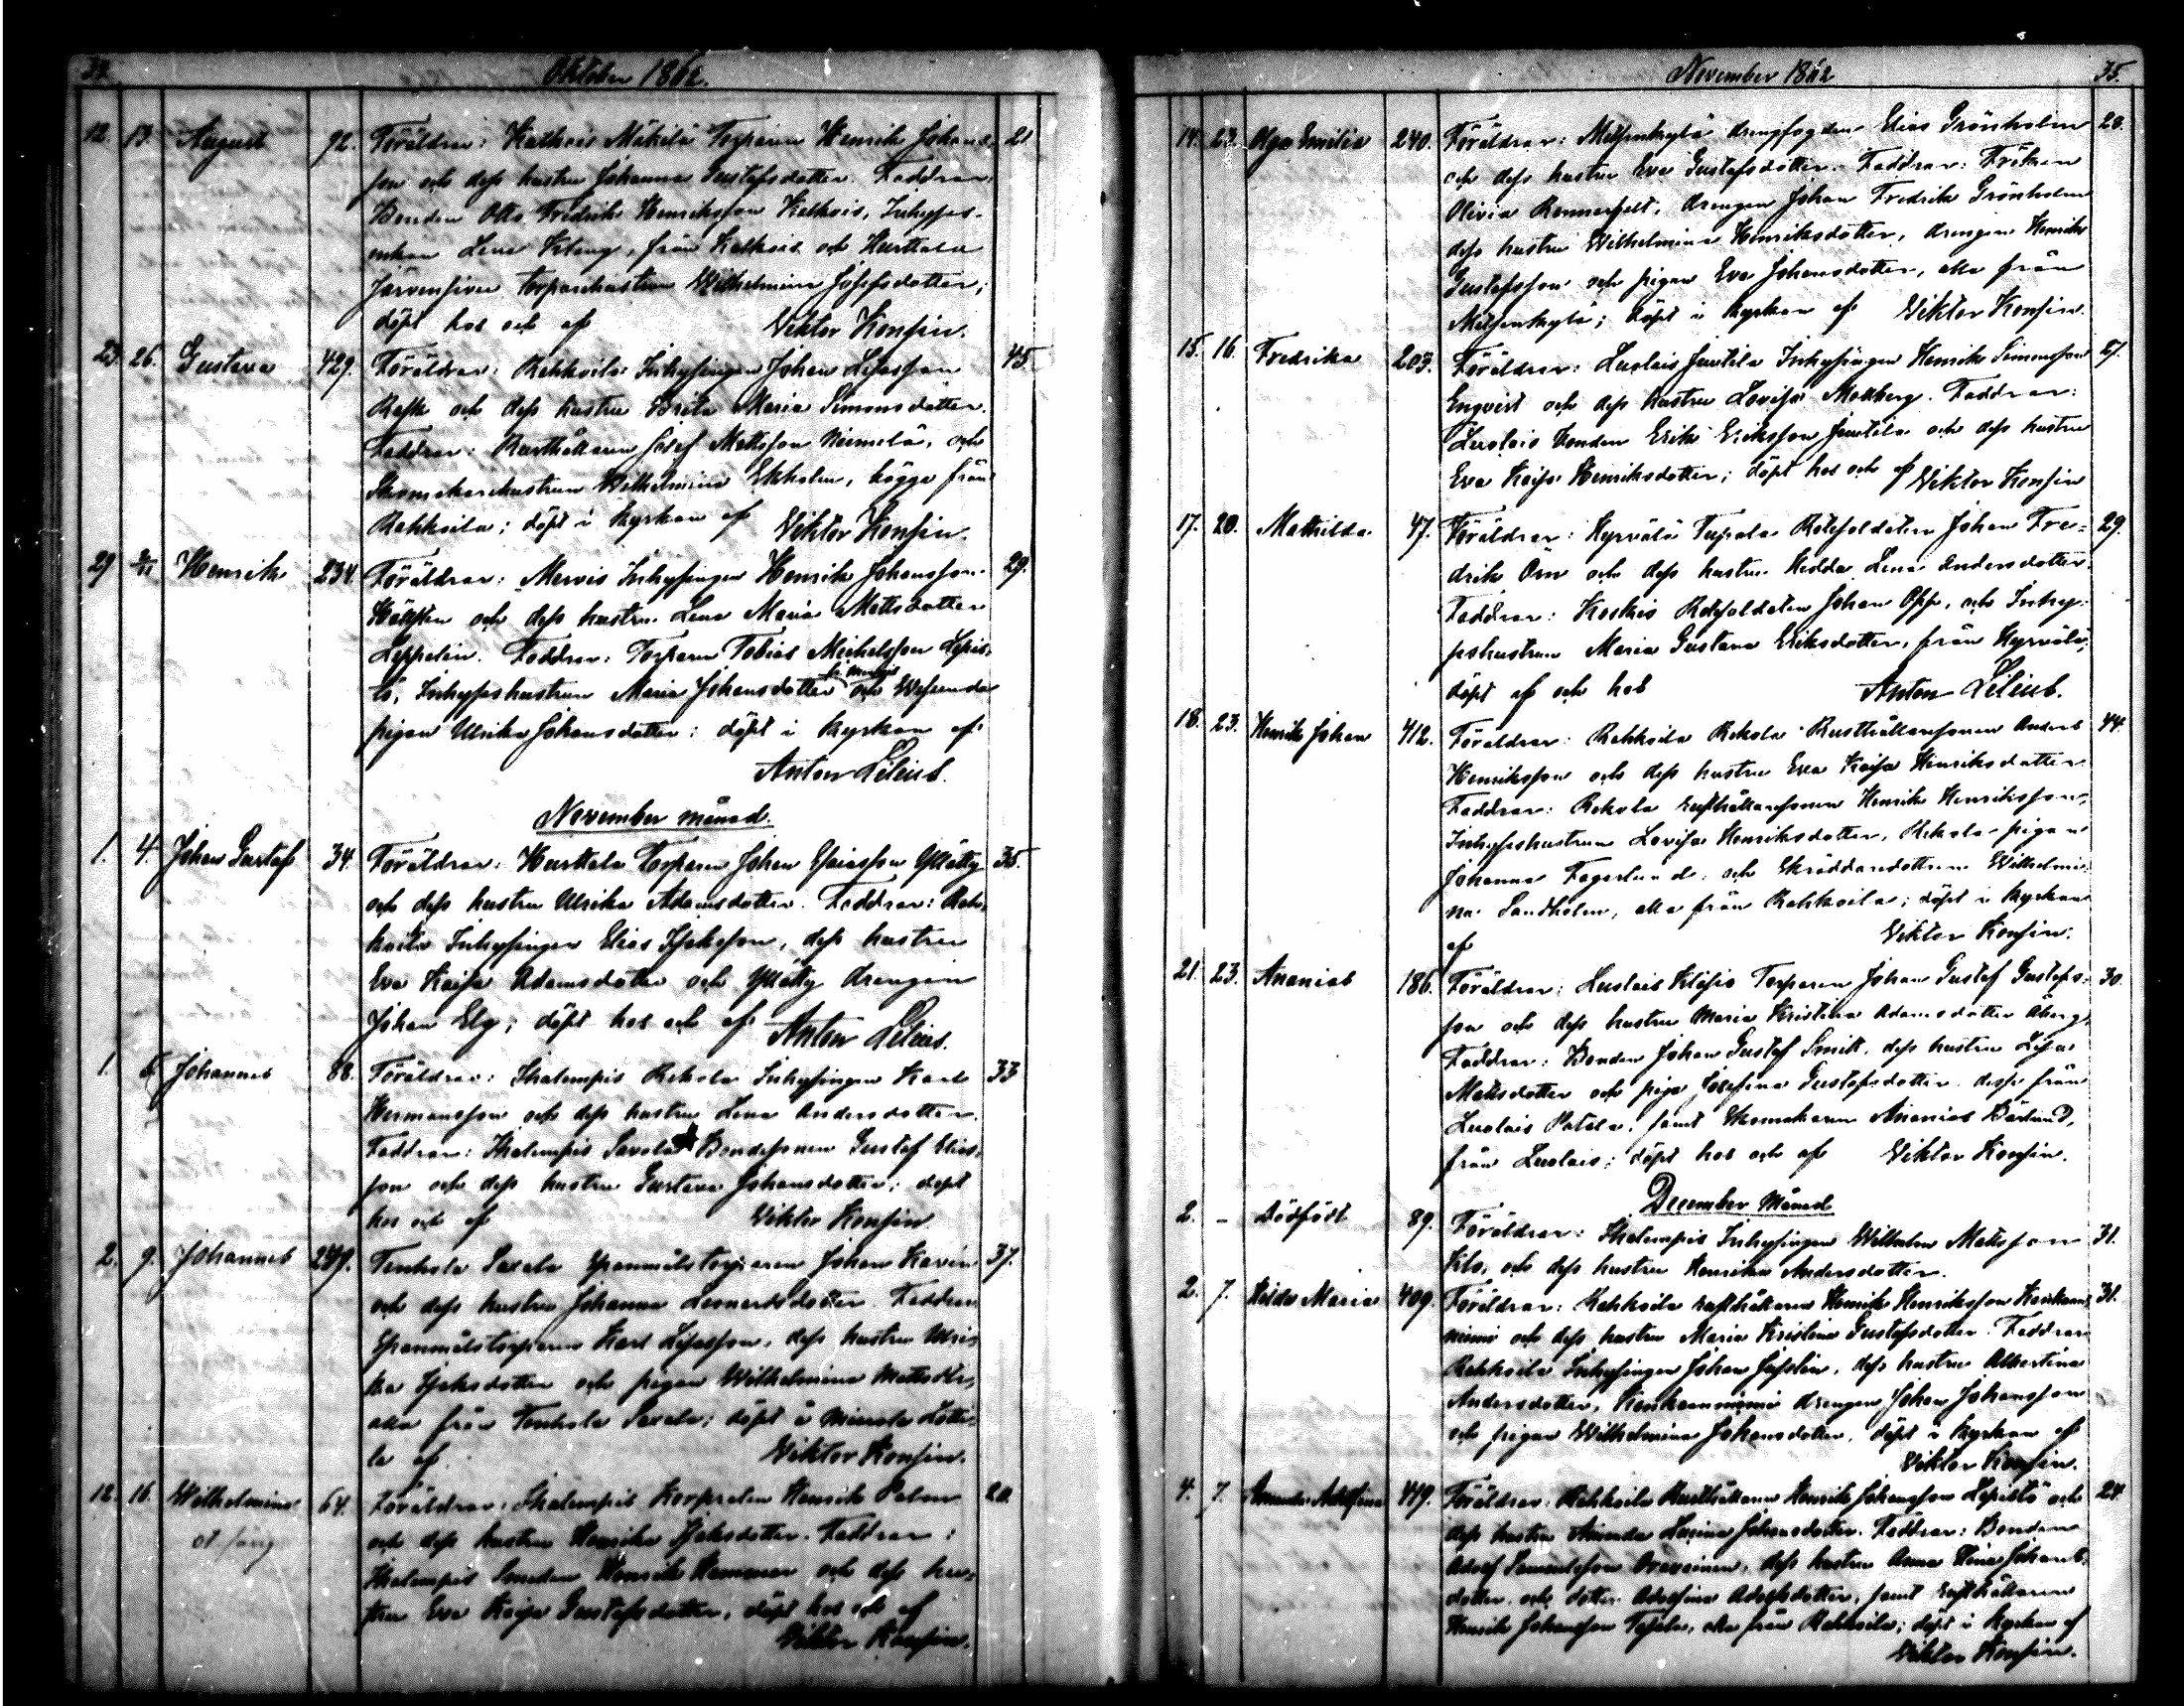 34.
Oktober 1862.
12. 13. August 92. Föräldrar: Kalkois Mäkilä Torparen Henrik Johans- 21
son och dess hustru Johanna Gustafsdotter. Faddrar:
Bonden Otto Fredrik Henriksson Kalkois, Inhyses-
enkan Lena Klang, från Kalkois och Hurttala
Järvensivu Torparehustrun Wilhelmina Josefsdotter;
döpt hos och af Viktor Konsin.
23. 26. Gustava 429. Föräldrar: Rahkoila Inhysingen Johan
Rask och dess hustru Brita Maria Simonsdotter.
Faddrar: Rusthållaren Josef Mattsson Niemelä, och
Skomakarehustrun Wilhelmina Ekholm, bägge från
Rahkoila; döpt i kyrkan af Viktor Konsin.
45.
29 2/11 Henrik 234. Föräldrar: Mervis Inhysingen Henrik Johansson 29.
och dess hustru Lena Maria Mattsdotter
Leppelin. Faddrar: Torparen Tobias Michelsson Lepis-
tö, Inhyseshustrun Maria Johansdotter fr. Mervis och
pigan Ulrika Johansdotter; döpt i kyrkan af
Anton Lilius.
November månad.
1. 4. Johan Gustaf 34. Föräldrar: Hurttala Torparen Johan Esaiasson 35.
och dess hustru Ulrika Adamsdotter. Faddrar: Rah-
koila Inhysingen Elias Isaksson, dess hustru
Eva Kaisa Adamsdotter och drengen
Johan Elg; döpt hos och af Anton Lilius.
1. Johannes 88. Föräldrar: Skalempis Rekola Inhysingen Karl 33
Hermansson och dess hustru Lena Andersdotter.
Faddrar: Skalempis Savola Bondesonen Gustaf Elias-
son och dess hustru Gustava Johansdotter; döpt
hos och af Viktor Konsin.
2. 9. Johannes 249. Tenhola Saxala Spannmålstorparen Johan Kavin 37.
och dess hustru Johanna Leonardsdotter. Faddrar:
Spannmålstorparen Karl dess hustru Ulri-
ka Isaksdotter och pigan Wilhelmina Mattsdtr,
alla från Tenhola Saxala; döpt å
la af Viktor Konsin.
12. 16. Wilhelmina 64. Föräldrar: Skalempis Korpralen Henrik Palm 20.
och dess hustru Henrika Isaksdotter. Faddrar:
Skalempis Smeden Henrik Hammar och dess hu-
stru Eva Kaisa Gustafsdotter, döpt hos och af
Viktor Konsin.
November 1862
35.
14. 23. Olga Emilia 240. Föräldrar: Metsenkylä drengfogden Elias Grönholm 20.
och dess hustru Eva Gustafsdotter. Faddrar: Fröken
Olivia drengen Johan Fredrik Grönholm
dess hustru Wilhelmina Henriksdotter, drengen Henrik
Gustafsson och pigan Eva Johansdotter, alla från
Metsenkylä; döpt i kyrkan af Viktor Konsin.
15. 16. Fredrika 203. Föräldrar: Luolais Juutila Inhysingen Henrik Simonsson
Engvist och dess hustru Lovisa Faddrar:
Luolais Bonden Erik Eriksson Juutila och dess hustru
Eva Kaisa Henriksdotter; döpt hos och af Viktor Konsin
17. 20. Mathilda 47. Föräldrar: Hyrvälä Rotesoldaten Johan Fre- 29.
drik Örn och dess hustru Hedda Lena Andersdotter.
Faddrar: Koskis Rotesoldaten Johan och Inhy-
seshustrun Maria Gustava Eriksdotter, från Hyrvälä;
döpt af och hos Anton Lilius.
18. 23. Henrik Johan 412. Föräldrar: Rahkoila Rekola Rusthållaresonen Anders 44.
Henriksson och dess hustru Eva Kaisa Henriksdotter
Faddrar: Rekola Rusthållaresonen Henrik Henriksson,
Inhyseshustrun Lovisa Henriksdotter, Rekola pigan
Johanna Fagerlund, och Skräddaredottern Wilhelmi-
na Sandholm, alla från Rahkoila; döpt i kyrkan
af Viktor Konsin.
21. 23. Ananias 186. Föräldrar: Luolais Torparen Johan Gustaf Gustafs- 30.
son och dess hustru Maria Kristina Adamsdotter Åberg.
Faddrar: Bonden Johan Gustaf Smitt, dess hustru Lisa
Matsdotter och piga Josefina Gustafsdotter desse från
Luolais samt Skomakaren Ananias
från Luolais; döpt hos och af Viktor Konsin.
December Månad
2. - Dödfödt 89. Föräldrar: Skalempis Inhysingen Wilhelm Matsson 31.
och dess hustru Henrika Andersdotter.
2. 7. Maria 409. Föräldrar: Rahkoila Rusthållaren Henrik Henriksson Kankaan- 31.
niemi och dess hustru Maria Kristina Gustafsdotter. Faddrar:
Rahkoila Inhysingen Johan dess hustru Albertina
Andersdotter, Kankaanniemi drengen Johan Johansson
och pigan Wilhelmina Johansdotter, döpt i kyrkan af
Viktor Konsin.
4. 7. Amanda Adolfina 419. Föräldrar: Rahkoila Rusthållaren Henrik Johansson Lepistö och 24.
dess hustru Amanda Johansdotter. Faddrar: Bonden
Adolf Samuelsson dess hustru Anna Johans-
dotter och dotter Adolfina Adolfsdotter, samt Rusthållaren
Henrik Johansson alla från Rahkoila; döpt i kyrkan af
Viktor Konsin.